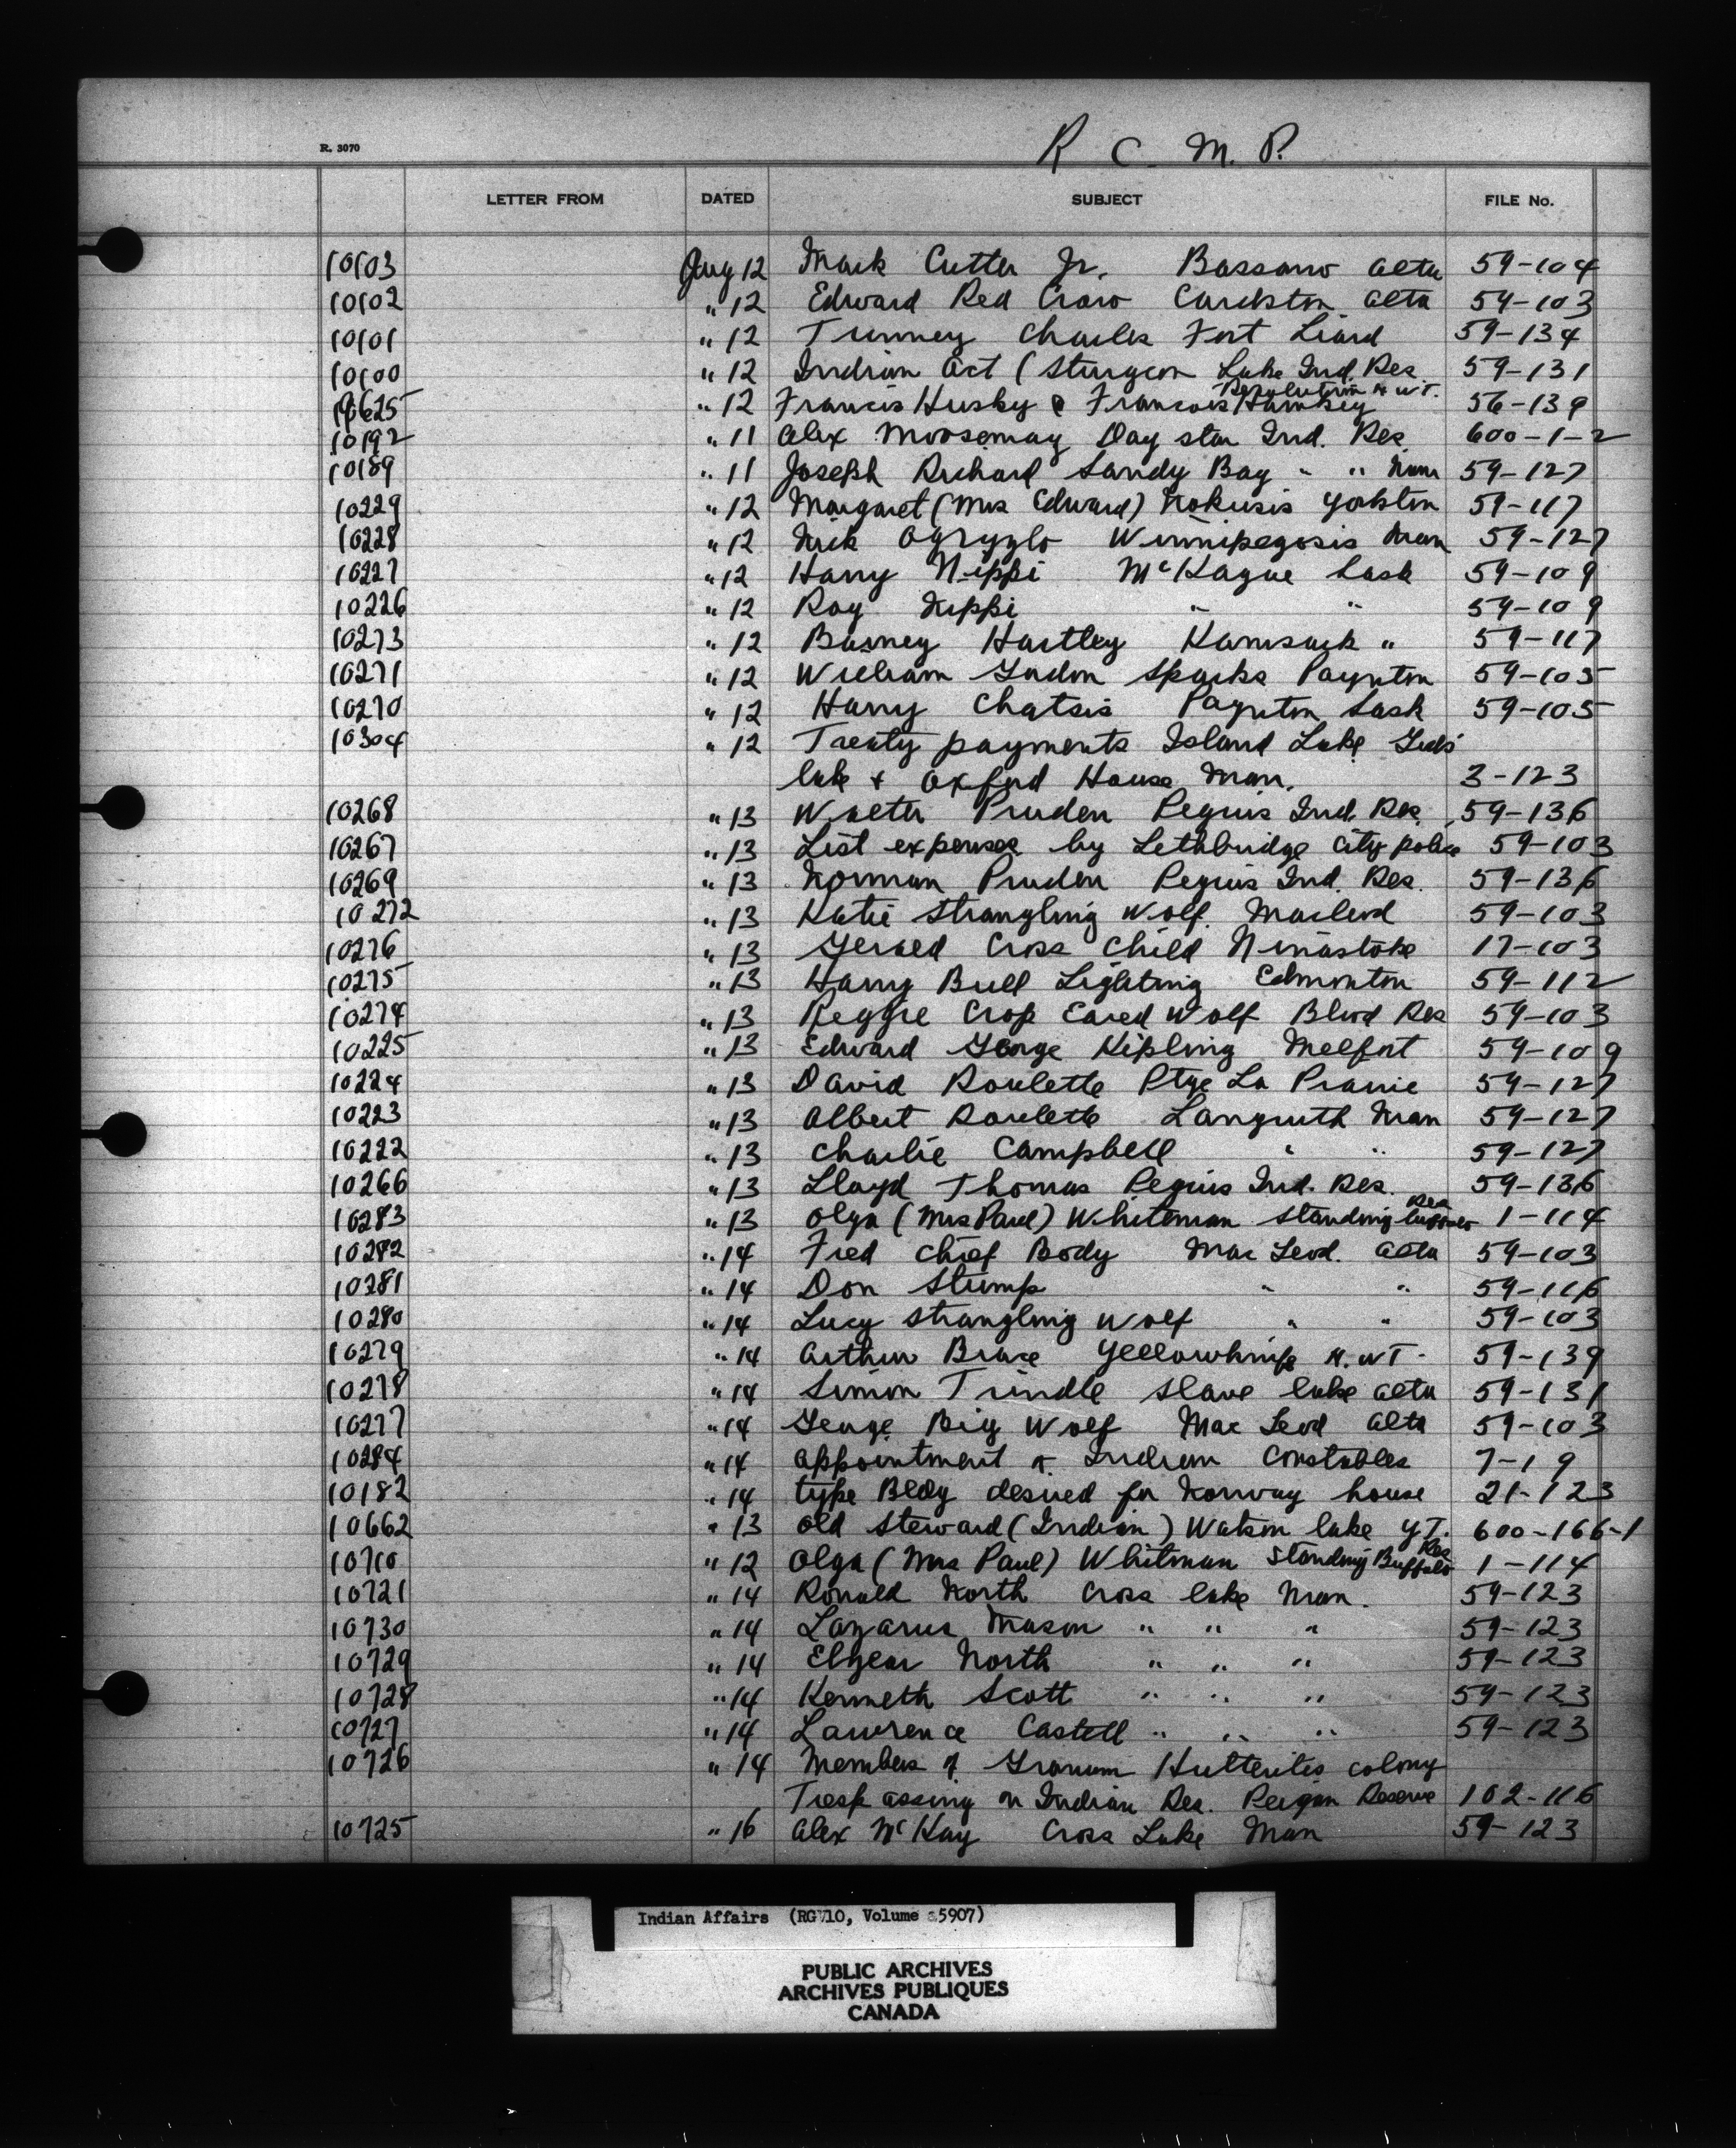 R. 3070
R. C. M. P.
LETTER FROM DATED SUBJECT FILE No.
10103 Aug 12 Mark Cutter Jr. Bassano Alta 59-104
10102 " 12 Edward Red Crow Cardston Alta 59-103
10101 " 12 Tunney Charles Fort Liard 59-134
10100 " 12 Indian Act (Sturgeon Lake Ind. Res 59-131
Resolution N.W.T.
10625 " 12 Francis Husky @ Francois 56-139
10192 " 11 Alex Moosemay Day Star Ind. Res 600-1-2
10189 " 11 Joseph Richard Sandy Bay " " Man 59-127
10229 " 12 Margaret (Mrs Edward) Kokusis Yorkton 59-117
10228 " 12 Nick Ogryzlo Winnipegosis Man 59-127
10227 " 12 Harry Nippi McKague Sask 59-109
10226 " 12 Roy Nippi " " 59-109
10273 " 12 Barney Hartley Kamsack " 59-117
10271 " 12 William Gordon Sparks Paynton 59-105
10270 " 12 Harry Chatsis Paynton Sask 59-105
10304 " 12 Treaty payments Island Lake Gods
lake & Oxford House Man. 3-123
10268 " 13 Walter Pruden Peguis Ind. Res. 59-136
10267 " 13 List expenses by Lethbridge City police 59-103
10269 " 13 Norman Pruden Peguis Ind. Res. 59-136
10272 " 13 Katie Strangling Wolf Macleod 59-103
10276 " 13 Gerald Cross Child Ninastoke 17-103
10275 " 13 Harry Bull Lighting Edmonton 59-112
10274 " 13 Reggie Crop Eared Wolf Blood Res 59-103
10225 " 13 Edward George Kipling Melfort 59-109
10224 " 13 David Roulette Ptge La Prairie 59-127
10223 " 13 Albert Roulette Langruth Man 59-127
10222 " 13 Charlie Campbell " " 59-127
10266 " 13 Lloyd Thomas Peguis Ind. Res. 59-136
10283 " 13 Olga (Mrs Paul) Whiteman Standing Buffalo Res 1-114
10282 " 14 Fred Chief Body Mac Leod. Alta 59-103
10281 " 14 Don Stump " " 59-116
10280 " 14 Lucy Strangling Wolf " " 59-103
10279 " 14 Arthur Brace Yellowknife N.W.T. 59-139
10278 " 14 Simon Trindle Slave lake Alta 59-131
10277 " 14 George Big Wolf Mac Leod Alta 59-103
10284 " 14 Appointment of Indian Constables 7-19
10182 " 14 type Bldg desired for Norway house 21-123
10662 " 13 Old Steward (Indian) Watson lake Y.T. 600-166-1
10710 " 12 Olga (Mrs Paul) Whitman Standing Buffalo Res 1-114
10721 " 14 Ronald North Cross lake Man. 59-123
10730 " 14 Lazarus Mason " " " 59-123
10729 " 14 Elyear North " " " 59-123
10728 " 14 Kenneth Scott " " " 59-123
10727 " 14 Lawrence Castell " " " 59-123
10726 " 14 Members of Granum Hutterites colony
Tresp assing on Indian Res. Peigan Reserve 102-116
10725 " 16 Alex McKay Cross Lake Man 59-123
Indian Affairs (RG 10, Volume 5907)
PUBLIC ARCHIVES
ARCHIVES PUBLIQUES
CANADA